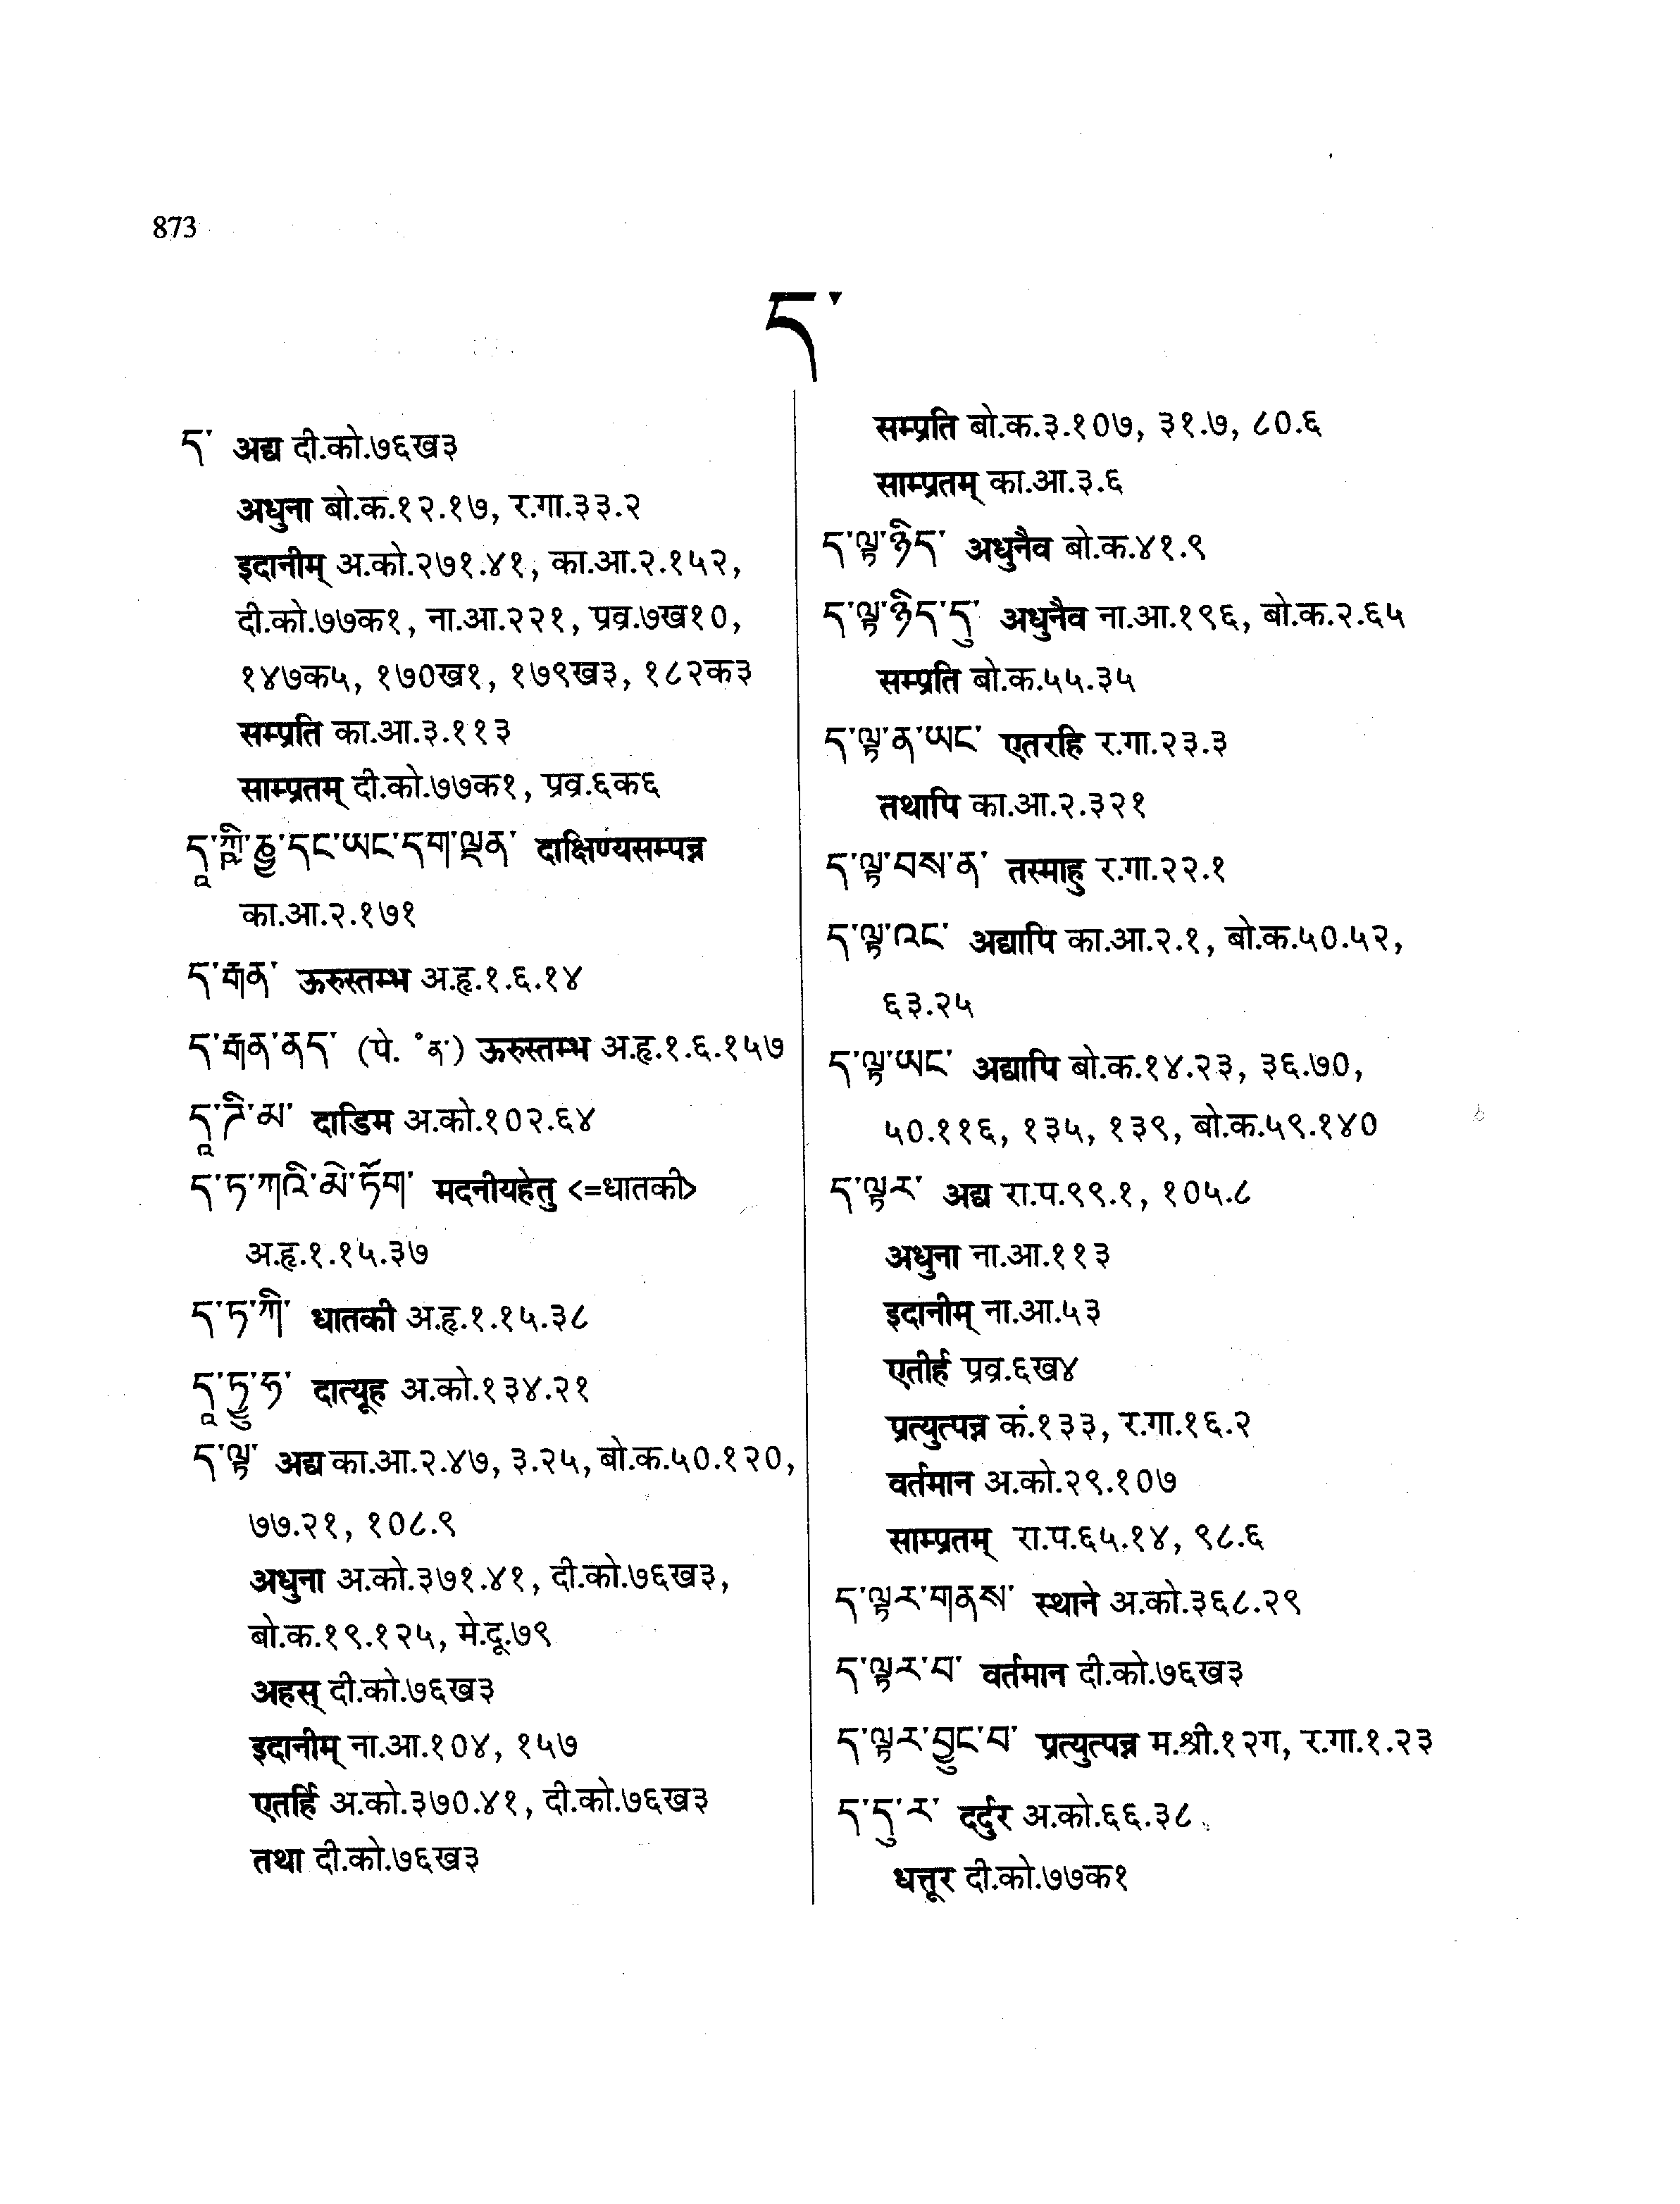 873
ད་
ད་ अद्य दी.को.७६ख३
अधुना बो.क.१२.१७, र.गा.३३.२
इदानीम् अ.को.२७१.४१, का.आ.२.१५२,
दी.को.७७क१, ना.आ.२२१, प्रव्र.७ख१०,
१४७क५, १७०ख१, १७९ख३, १८२क३
सम्प्रति का.आ.३.११३
साम्प्रतम् दी.को.७७क१, प्रव्र.६क६
དང་ཡང་དག་ལྡན་ दाक्षिण्यसम्पन्न
का.आ.२.१७१
ད་རྒན་ ऊरुस्तम्भ अ.हृ.१.६.१४
ད་རྒན་ནད་ (पे. ॰ན་) ऊरुस्तम्भ अ.हृ.१.६.१५७
དཱ་ཌི་མ་ दाडिम अ.को.१०२.६४
ད་ཏ་ཀའི་མེ་ཏོག་ मदनीयहेतु <=धातकी>
अ.हृ.१.१५.३७
ད་ཏ་ཀི་ धातकी अ.हृ.१.१५.३८
दात्यूह अ.को.१३४.२१
ད་ལྟ་ अद्य का.आ.२.४७, ३.२५, बो.क.५०.१२०,
७७.२१, १०८.९
अधुना अ.को.३७१.४१, दी.को.७६ख३,
बो.क.१९.१२५, मे.दू.७९
अहस् दी.को.७६ख३
इदानीम् ना.आ.१०४, १५७
एतर्हि अ.को.३७०.४१, दी.को.७६ख३
तथा दी.को.७६ख३
सम्प्रति बो.क.३.१०७, ३१.७, ८०.६
साम्प्रतम् का.आ.३.६
ད་ལྟ་ཉིད་ अधुनैव बो.क.४१.९
ད་ལྟ་ཉིད་དུ་ अधुनैव ना.आ.१९६, बो.क.२.६५
सम्प्रति बो.क.५५.३५
ད་ལྟ་ན་ཡང་ एतरहि र.गा.२३.३
तथापि का.आ.२.३२१
ད་ལྟ་བས་ན་ तस्माहु र.गा.२२.१
ད་ལྟ་འང་ अद्यापि का.आ.२.१, बो.क.५०.५२,
६३.२५
ད་ལྟ་ཡང་ अद्यापि बो.क.१४.२३, ३६.७०,
५०.११६, १३५, १३९, बो.क.५९.१४०
ད་ལྟར་ अद्य रा.प.९९.१, १०५.८
अधुना ना.आ.११३
इदानीम् ना.आ.५३
एतीर्ह प्रव्र.६ख४
प्रत्युत्पन्न कं.१३३, र.गा.१६.२
वर्तमान अ.को.२९.१०७
साम्प्रतम् रा.प.६५.१४, ९८.६
ད་ལྟར་གནས་ स्थाने अ.को.३६८.२९
ད་ལྟར་བ་ वर्तमान दी.को.७६ख३
ད་ལྟར་བྱུང་བ་ प्रत्युत्पन्न म.श्री.१२ग, र.गा.१.२३
ད་དུ་ར་ दर्दुर अ.को.६६.३८
धत्तूर दी.को.७७क१